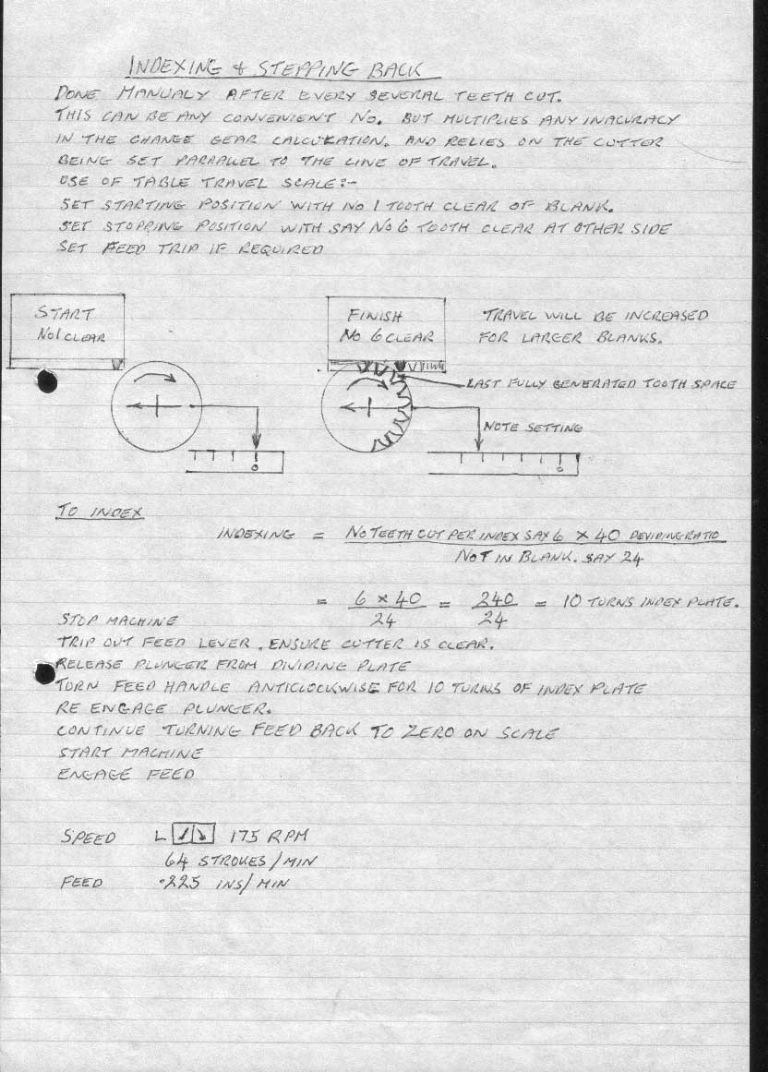 INDEXING & STEPPING BACK
DONE MANUALY AFTER EVERY SEVERAL TEETH CUT.
THIS CAN BE ANY CONVENIENT NO. BUT MULTIPLIES ANY INACURACY
IN THE CHANGE GEAR CALCULATION. AND RELIES ON THE CUTTER
BEING SET PARALLEL TO THE LINE OF TRAVEL.
USE OF TABLE TRAVEL SCALE:-
SET STARTING POSITION WITH NO 1 TOOTH CLEAR OF BLANK.
SET STOPPING POSITION WITH SAY NO 6 TOOTH CLEAR AT OTHER SIDE
SET FEED TRIP IF REQUIRED
START
NO1 CLEAR
FINISH
NO 6 CLEAR
TRAVEL WILL BE INCREASED
FOR LARGER BLANKS.
LAST FULLY GENERATED TOOTH SPACE
NOTE SETTING
0
0
TO INDEX
INDEXING = NO TEETH CUT PER INDEX SAY 6 × 40 DEVIDING RATIO
NO T IN BLANK. SAY 24
= 6 × 40 = 240 = 10 TURNS INDEX PLATE.
24 24
STOP MACHINE
TRIP OUT FEED LEVER. ENSURE CUTTER IS CLEAR.
RELEASE PLUNGER FROM DIVIDING PLATE
TURN FEED HANDLE ANTICLOCKWISE FOR 10 TURNS OF INDEX PLATE
RE ENGAGE PLUNGER.
CONTINUE TURNING FEED BACK TO ZERO ON SCALE
START MACHINE
ENGAGE FEED
SPEED L 175 RPM
64 STROKES/MIN
FEED .225 INS/MIN